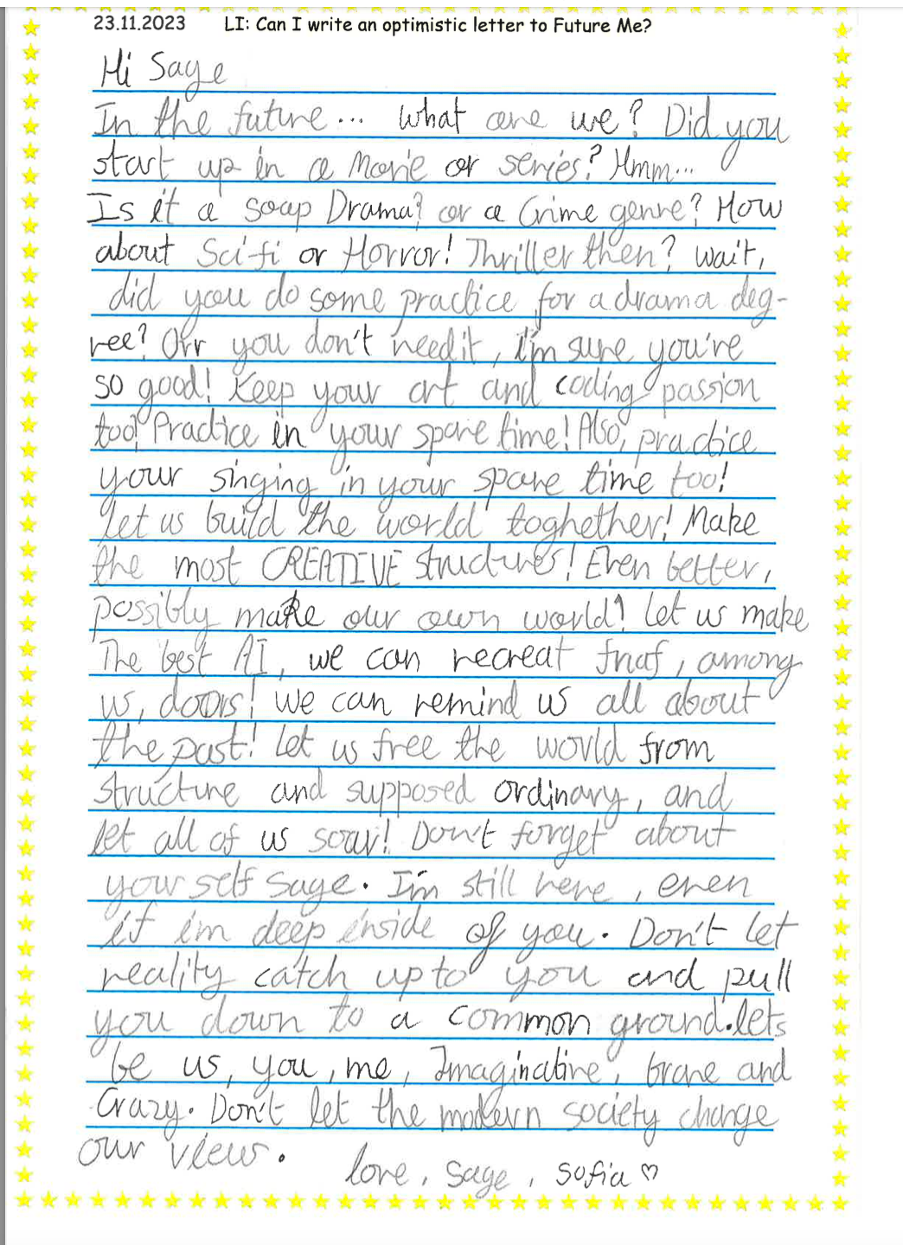 23.11.2023 LI: Can I write an optimistic letter to Future Me?
Hi Sage
In the future... what are we? Did you
start up in a Movie or series? Hmm...
Is it a soap Drama? or a Crime genre? How
about Sci-fi or Horror! Thriller then? wait,
did you do some practice for a drama deg-
ree? Orr you don't need it, i'm sure you're
so good! Keep your art and coding passion
too! Practice in your spare time! Also, practice
your singing in your spare time too!
let us build the world toghether! Make
the most CREATIVE structures! Even better,
possibly make our own world! let us make
The best AI, we can recreat fnaf, among
us, doors! we can remind us all about
the past! let us free the world from
structure and supposed ordinary, and
let all of us soar! Don't forget about
yourself Sage. I'm still here, even
if i'm deep inside of you. Don't let
reality catch up to you and pull
you down to a common ground. lets
be us, you, me, Imaginative, brave and
Crazy. Don't let the modern society change
our view.
love, sage, sofia ♡